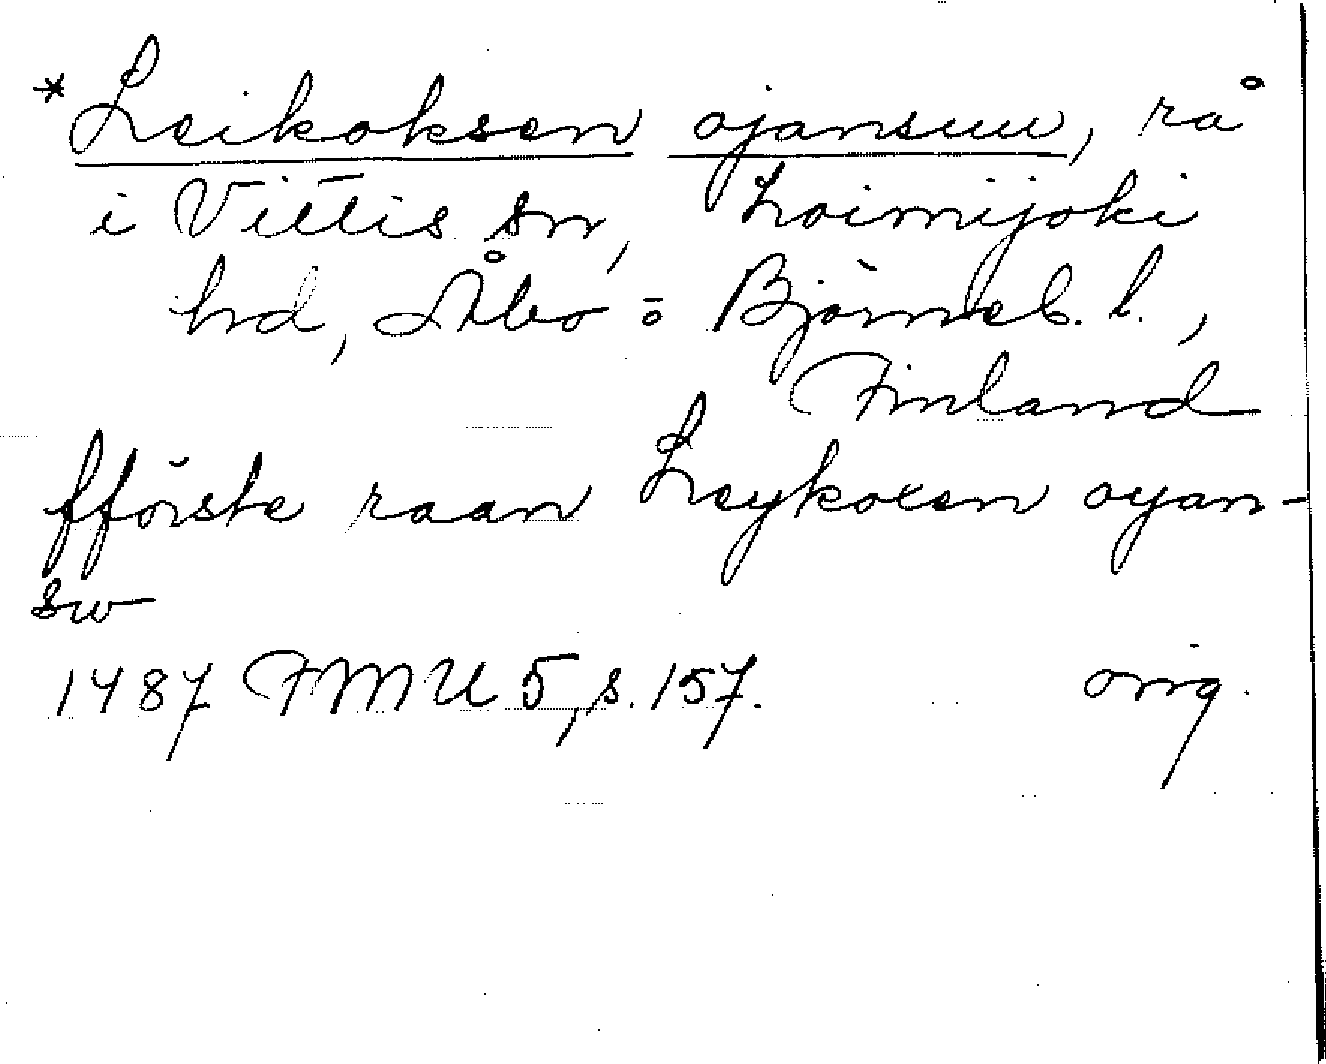 *Leikoksen ojansuu, rå
i Vittis sn, Loimijoki
hd, Åbo o Björneb. l.,
Finland
fförste raan Leykoxen oyan-
sw
1487 FMU 5, s. 157. orig.